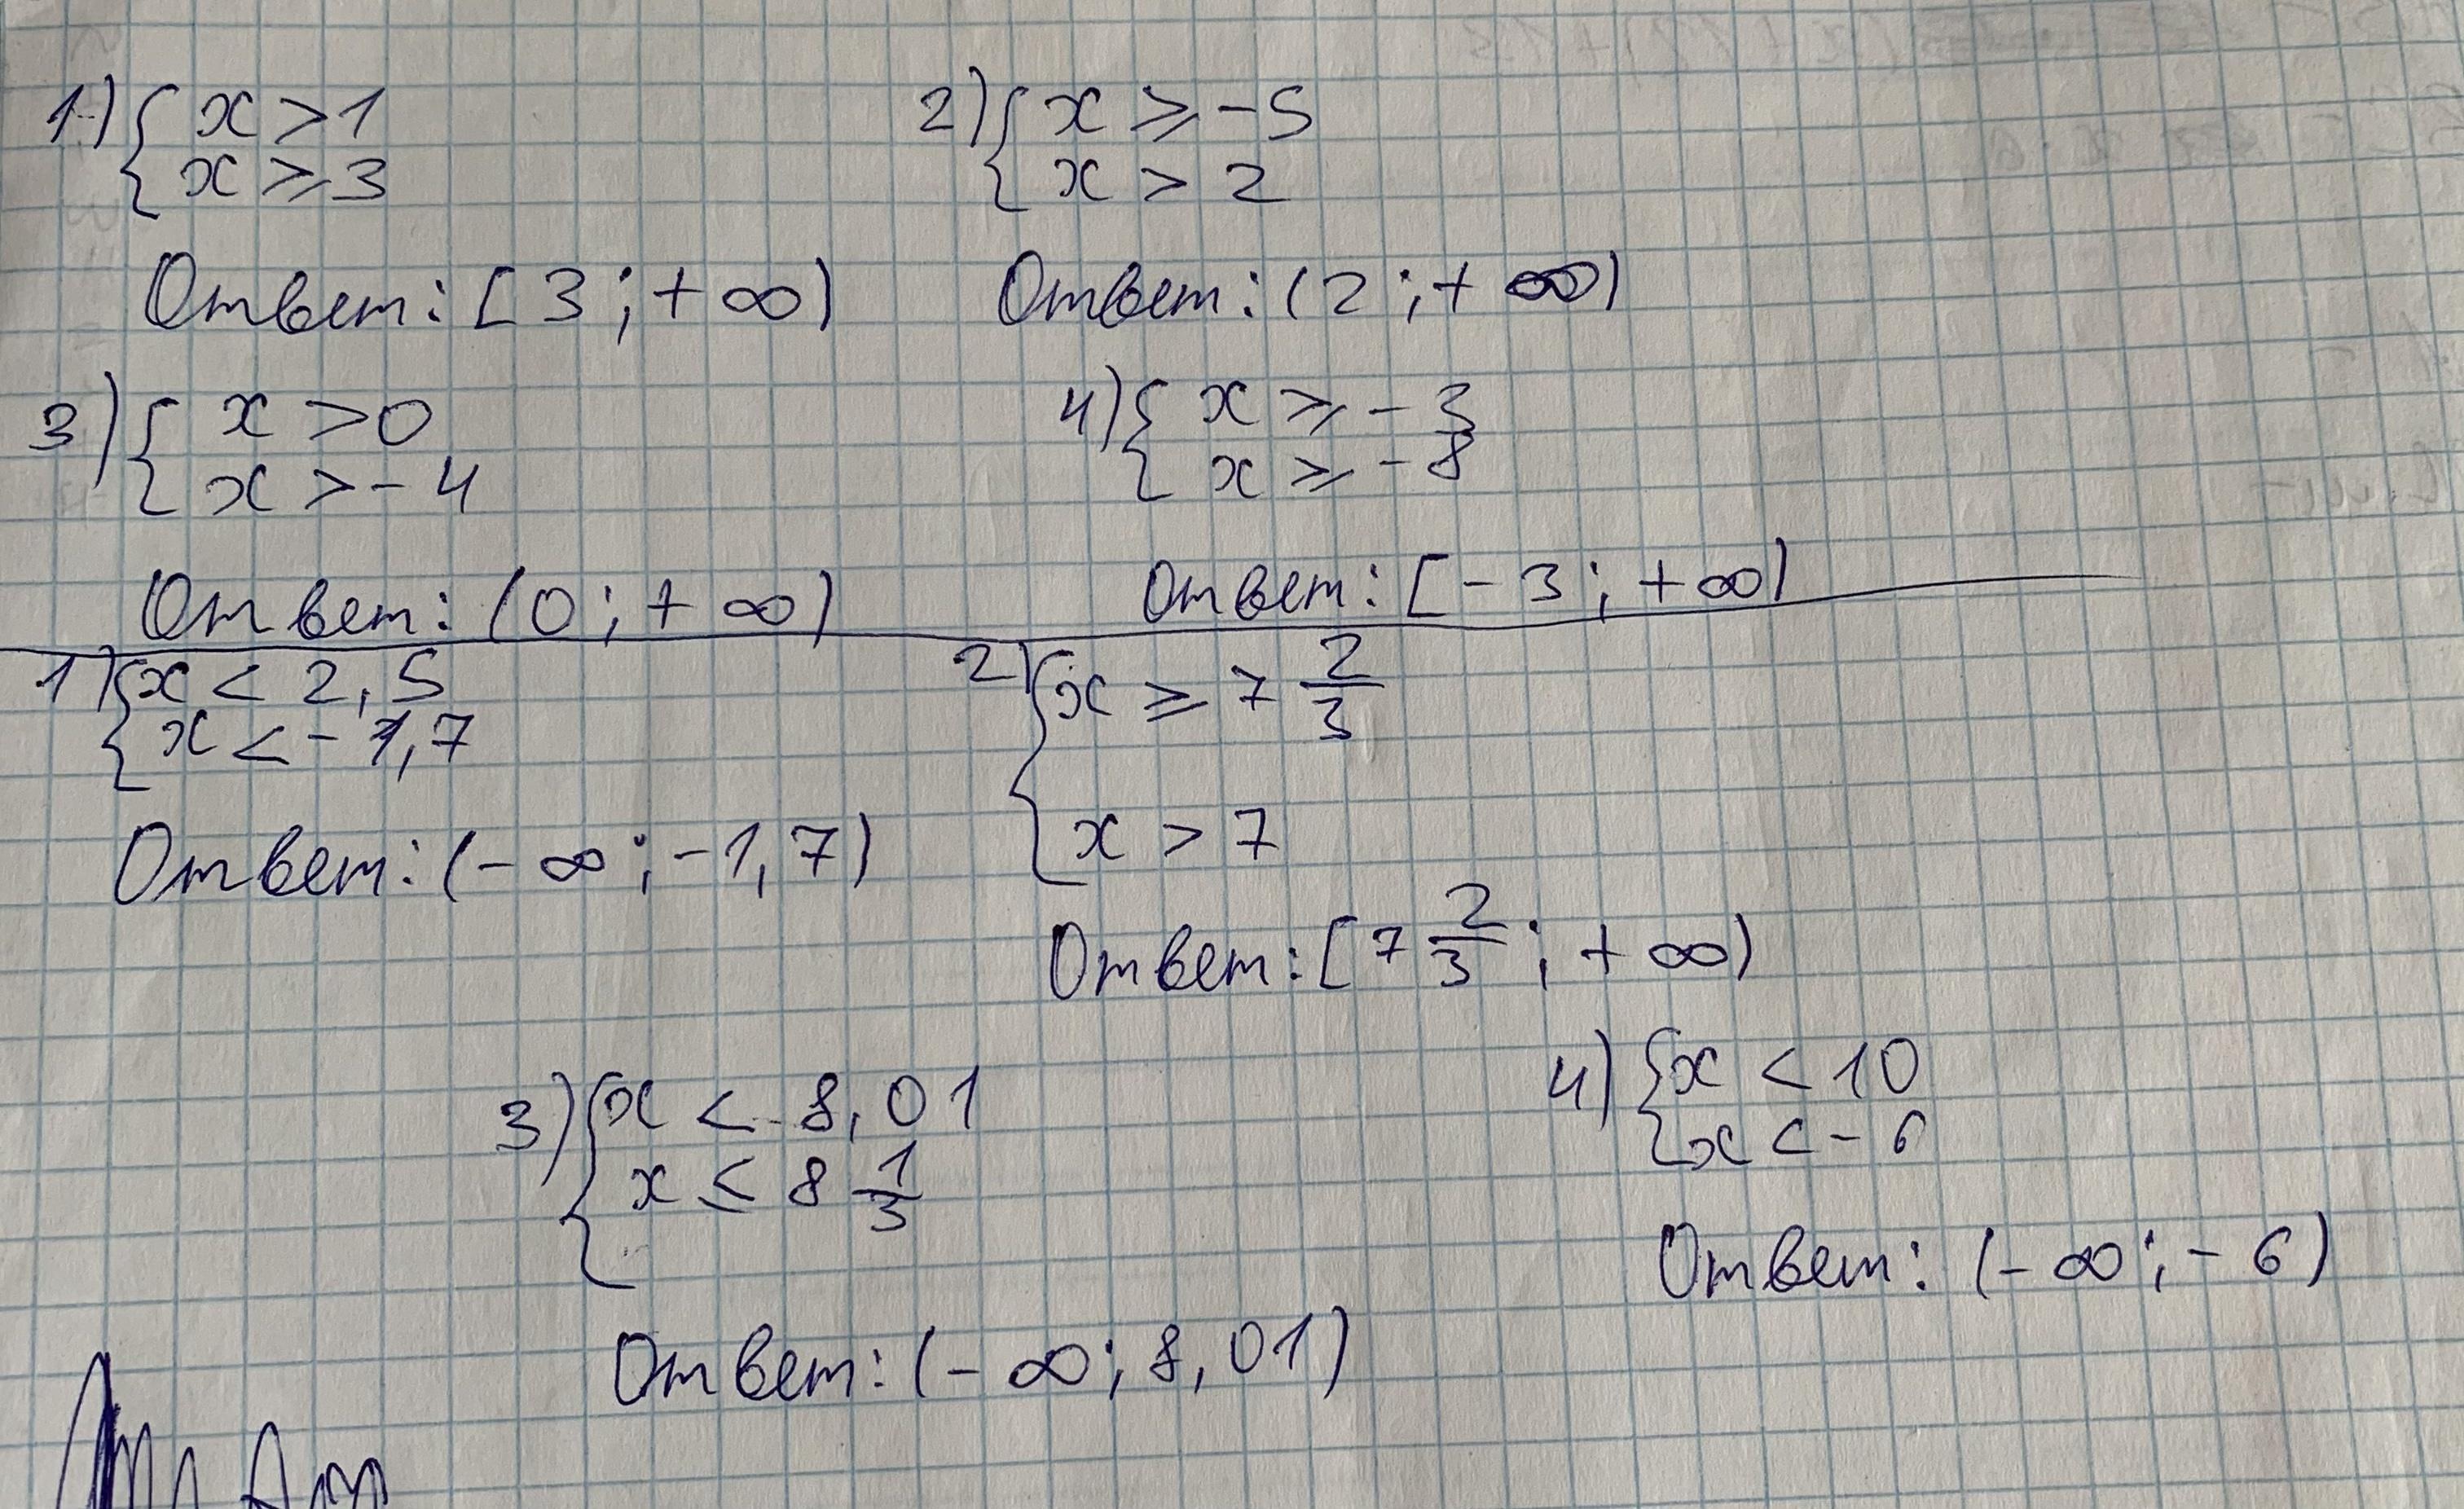 1) { x > 1
x ⩾ 3
Ответ: [3; +∞)
2) { x ⩾ -5
x > 2
Ответ: (2; +∞)
3) { x > 0
x > -4
Ответ: (0; +∞)
4) { x ⩾ -3
x ⩾ -8
Ответ: [-3; +∞)
1) { x < 2,5
x < -1,7
Ответ: (-∞; -1,7)
2) { x ⩾ 7 2/3
x > 7
Ответ: [7 2/3; +∞)
3) { x < 8,01
x ≤ 8 1/3
Ответ: (-∞; 8,01)
4) { x < 10
x < -6
Ответ: (-∞; -6)